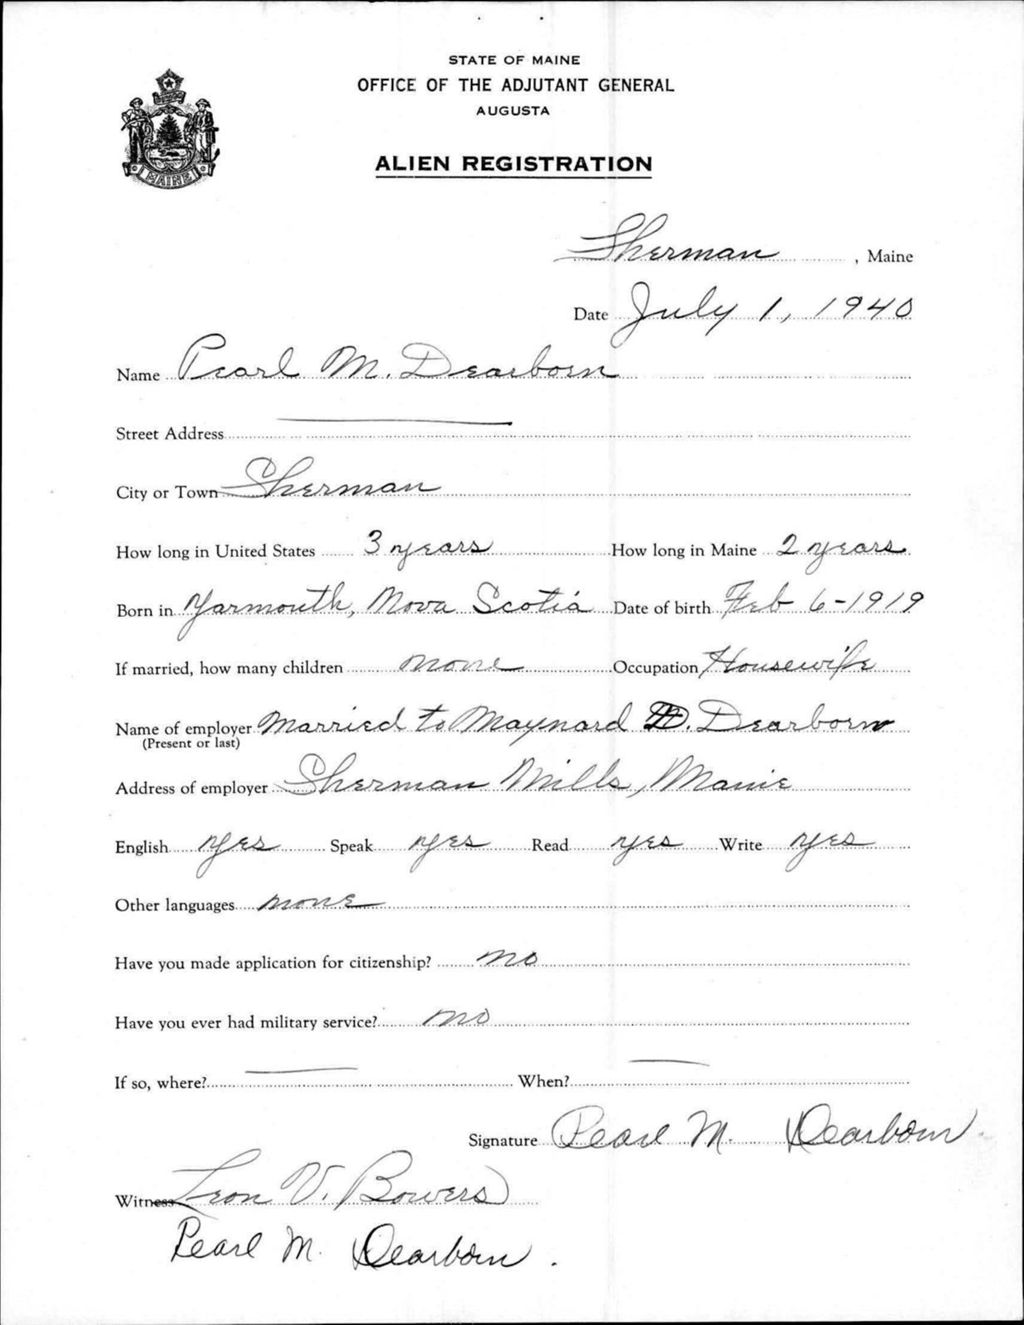 STATE OF MAINE
OFFICE OF THE ADJUTANT GENERAL
AUGUSTA
ALIEN REGISTRATION
MAINE
Sherman, Maine
Date July 1, 1940
Name Pearl M. Dearborn
Street Address
City or Town Sherman
How long in United States 3 years How long in Maine 2 years
Born in Yarmouth, Nova Scotia Date of birth Feb 6-1919
If married, how many children none Occupation Housewife
Name of employer Married to Maynard D. Dearborn
(Present or last)
Address of employer Sherman Mills, Maine
English yes Speak yes Read yes Write yes
Other languages none
Have you made application for citizenship? no
Have you ever had military service? no
If so, where? When?
Signature Pearl M. Dearborn
Witness Leon V. Bowers
Pearl M. Dearborn.